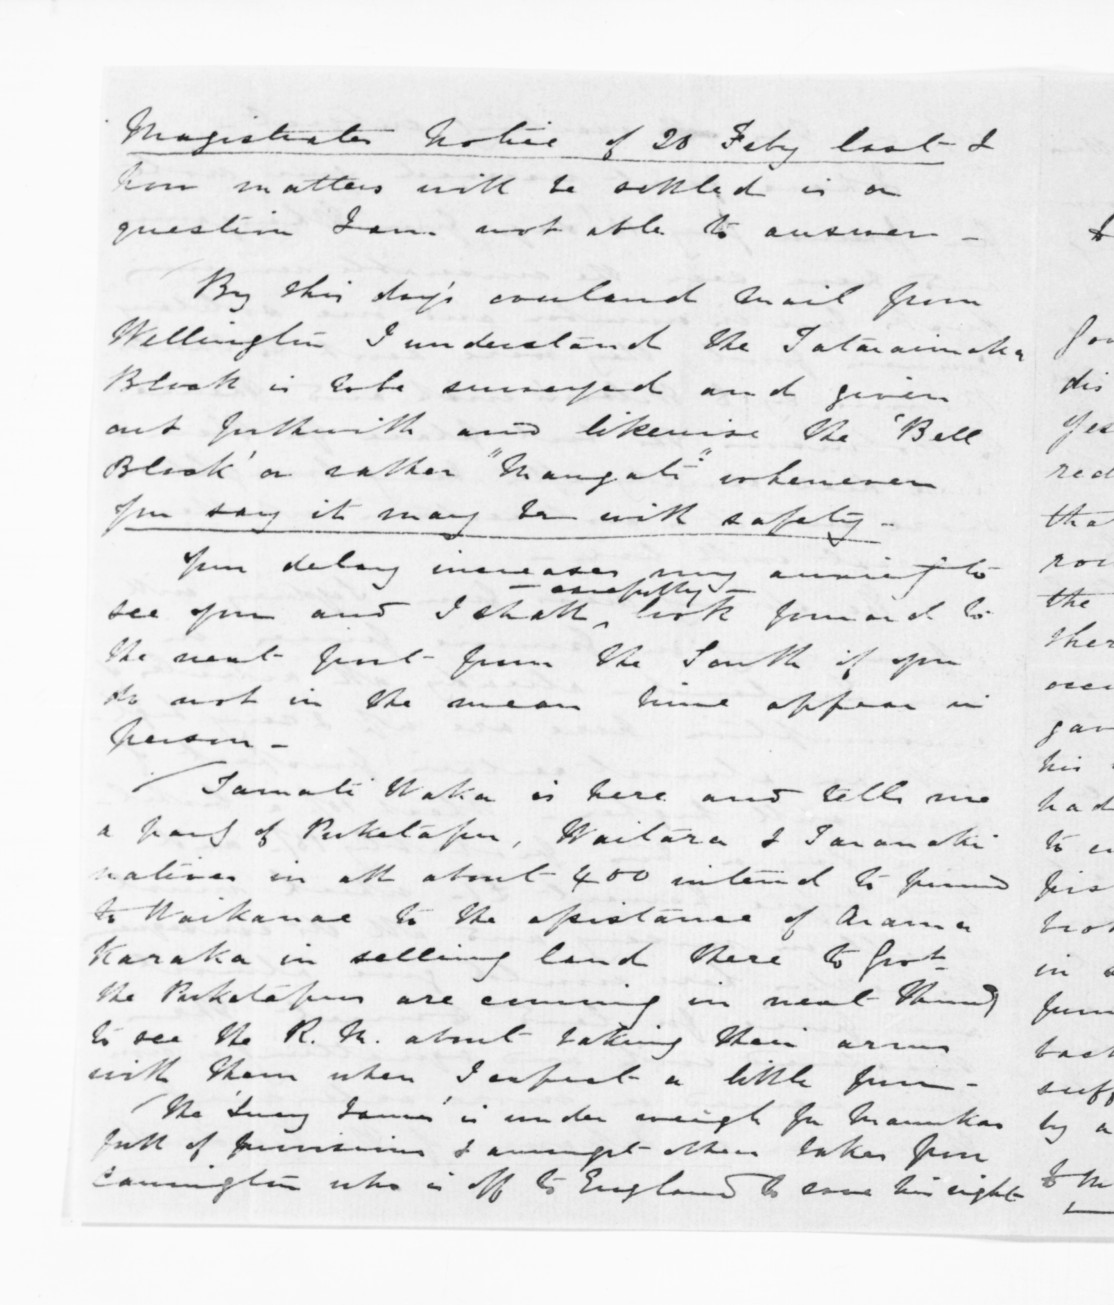 Magistrates Notice of 20 Feby last &
how matters will be settled is a
question I am not able to answer -
By this day's overland mail from
Wellington I understand the Tataraimaka
Block is to be surveyed and given
out forthwith and likewise the 'Bell
Block' or rather "Mangati" whenever
you say it may be with safety -
Your delay increases my anxiety to
see you and I shall carefully look forward to
the next post from the South if you
do not in the mean time appear in
person -
Tamati Waka is here and tells me
a party of Puketapu, Waitara & Taranaki
natives in all about 400 intend to proceed
to Waikanae to the assistance of Arama
Karaka in selling land there to Govt
the Puketapus are coming in next
to see the R. M. about taking their arms
with them when I expect a little
The 'Lucy James' is under weigh for Manukau
full of provisions & amongst others takes poor
Cannington who is off to England to save his sight